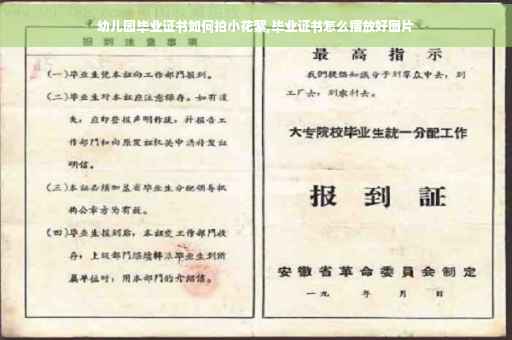 幼儿园毕业证书如何拍小花絮,毕业证书怎么摆放好图片
报到注意事项
(一)毕业生凭本証向工作部門报到。
(二)毕业生对本証应注意保存。如有遗
失,应即登报声明作废,并报告工
作部門和向原发証机关申請补发証
明信。
(三)本証必须加盖省毕业生分配领导机
构公章方为有效。
(四)毕业生报到后,本証交工作部門收
存;上级部門
毕业生到所
属单位时,用本部門的介绍信。
最高指示
我們提倡知識分子到羣众中去,到
工厂去,到农村去。
大专院校毕业生統一分配工作
报到証
安徽省革命委員会制定
一九 年 月 日